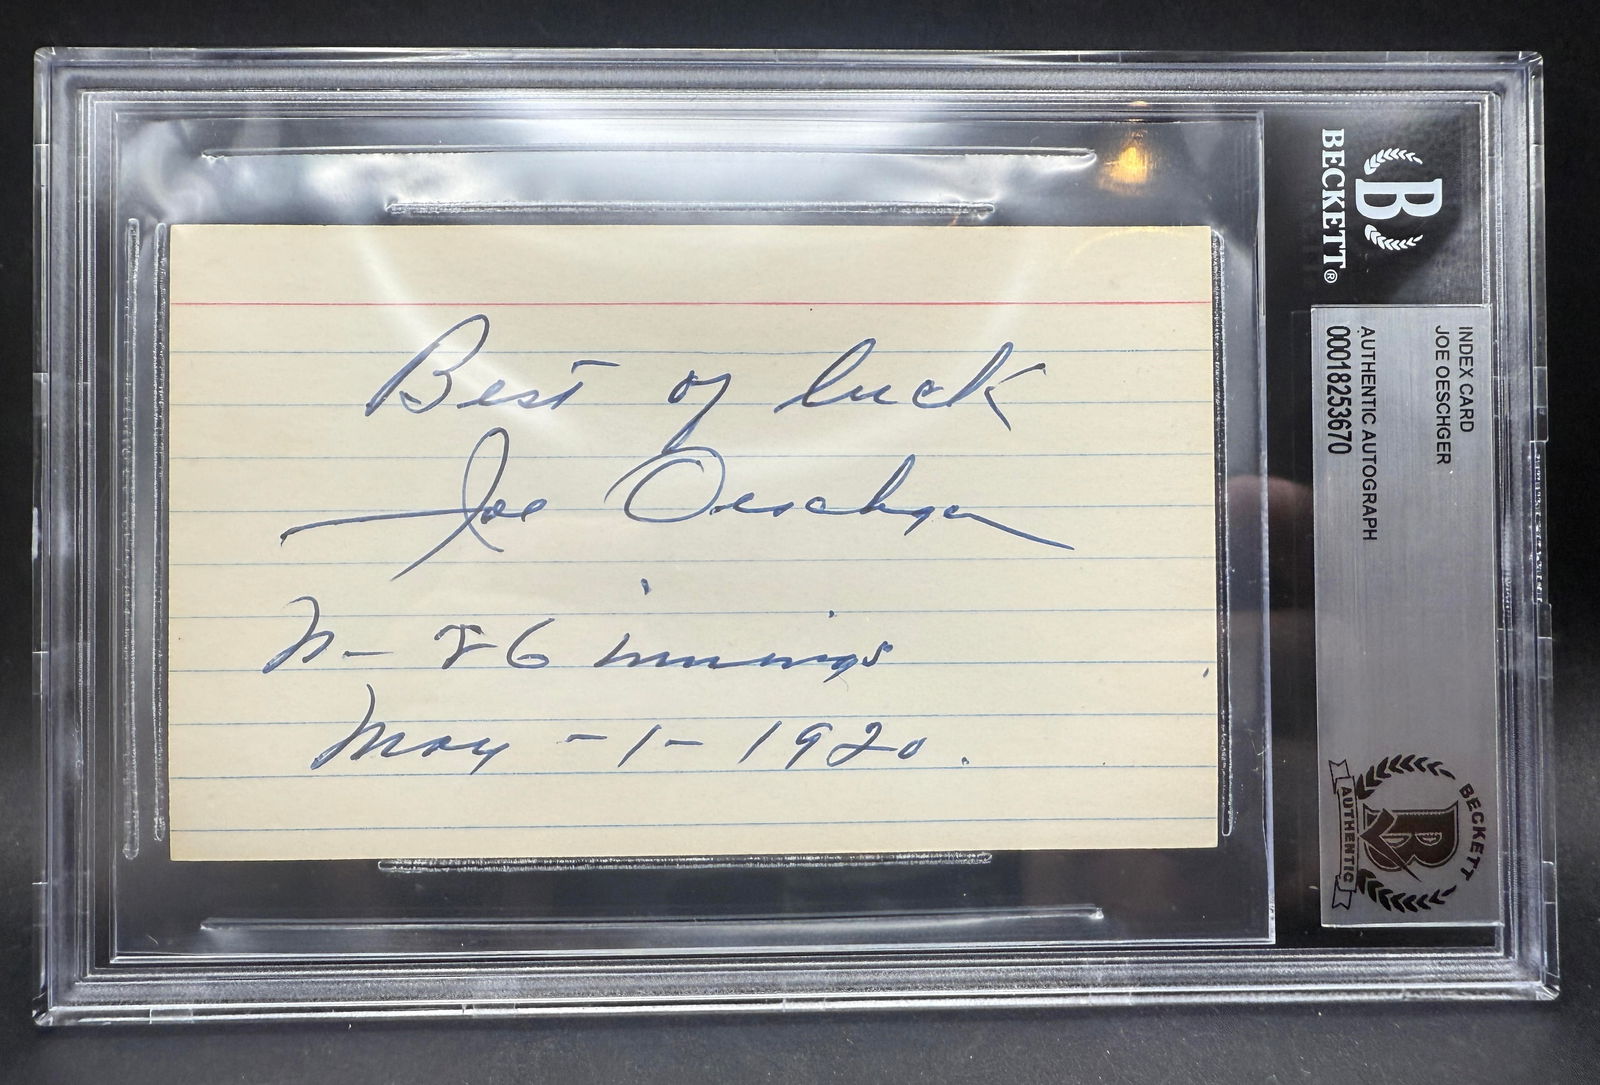 Best of luck
Joe Oeschger
N- 26 innings
May -1- 1920.
B
BECKETT®
INDEX CARD
JOE OESCHGER
AUTHENTIC AUTOGRAPH
00018253670
BECKETT
B
AUTHENTIC